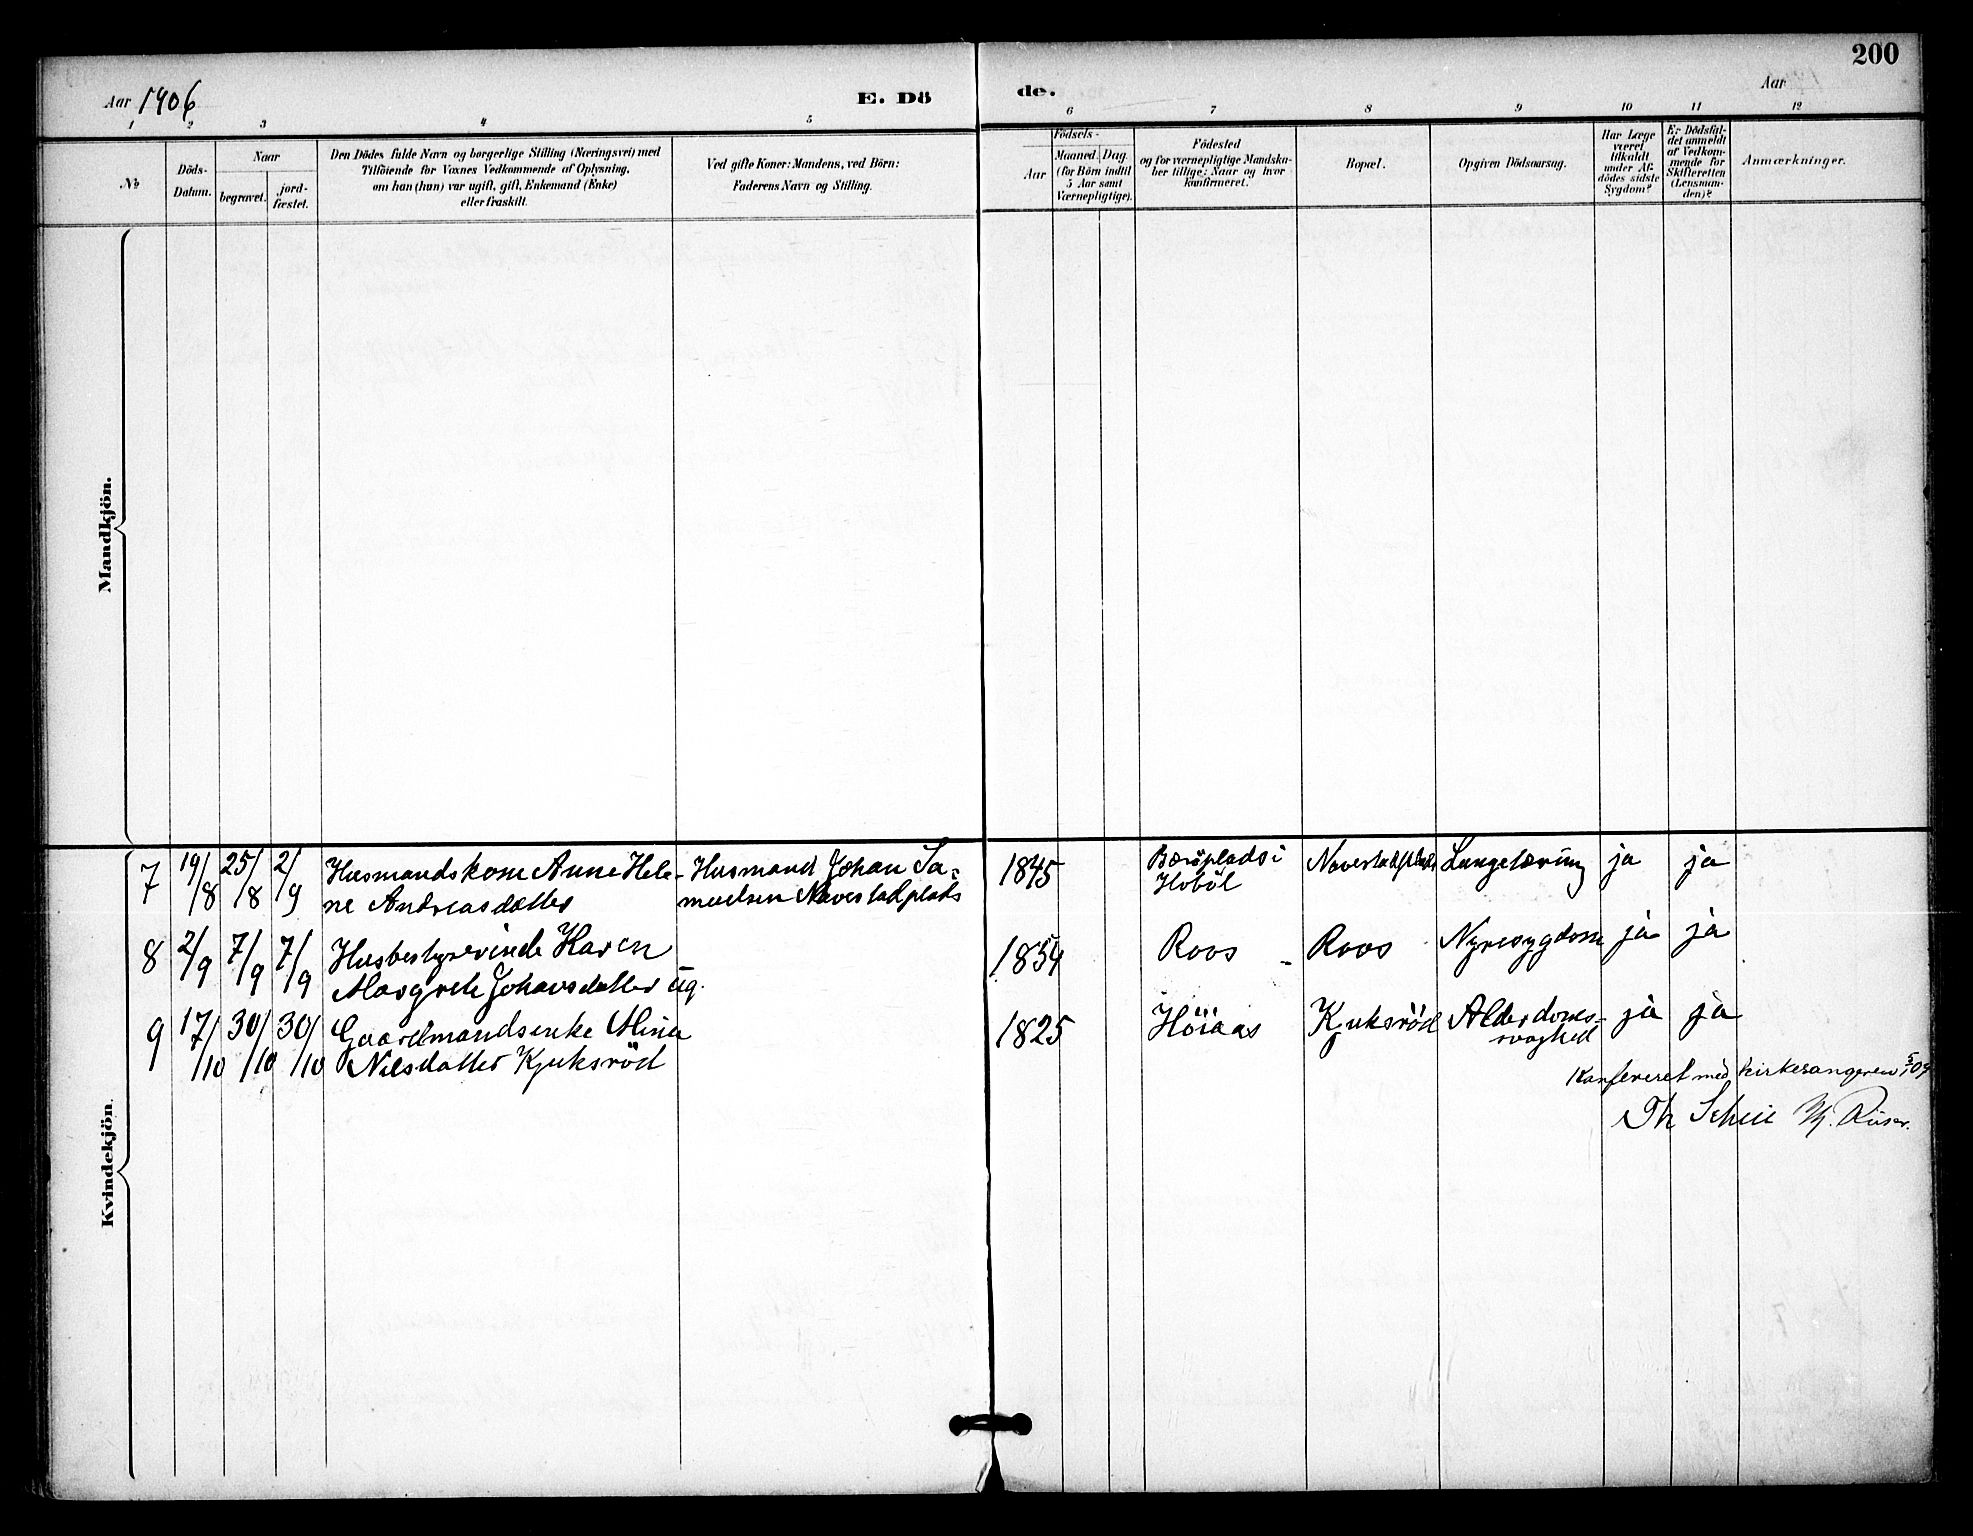 200
Aar 1906
E. Dö
de.
Aar
1 2 3 4 5 6 7 8 9 10 11 12
No
Döds-
Datum.
Naar
begravet.
jord-
fæstet.
Den Dödes fulde Navn og borgerlige Stilling (Næringsvei) med
Tilföiende for Voxnes Vedkommende af Oplysning,
om han (hun) var ugift, gift, Enkemand (Enke)
eller fraskilt.
Ved gifte Koner: Mandens, ved Börn:
Faderens Navn og Stilling.
Födsels-
Aar
Maaned. Dag
(for Börn indtil
5 Aar samt
Værnepligtige).
Födested
og for værnepligtige Mandska-
ber tillige: Naar og hvor
konfirmeret.
Bopæl.
Opgiven Dödsaarsag.
Har Læge
været
tilkaldt
under Af-
dödes sidste
Sygdom?
Er Dödsfal-
det anmeldt
af Vedkom-
mende for
Skifteretten
(Lensman-
den)?
Anmærkninger.
Mandkjön.
Kvindekjön.
7 19/8 25/8 2/9 Husmandskone Anne Hele- Husmand Johan Sa- 1845 Bæröplads i Navestadplads Lungetæring ja ja
ne Andreasdatter muelsen Navestadplads Hoböl
8 2/9 7/9 7/9 Husbestyrerinde Karen 1854 Roos - Roos Nyresygdom ja ja
Margrete Johansdatter ug.
9 17/10 30/10 30/10 Gaardmandsenke Mina 1825 Höiaas Kjuksröd Alderdoms- ja ja
Nilsdatter Kjuksröd svaghed
Konfereret med kirkesangeren 5/1 09
Th Scheie